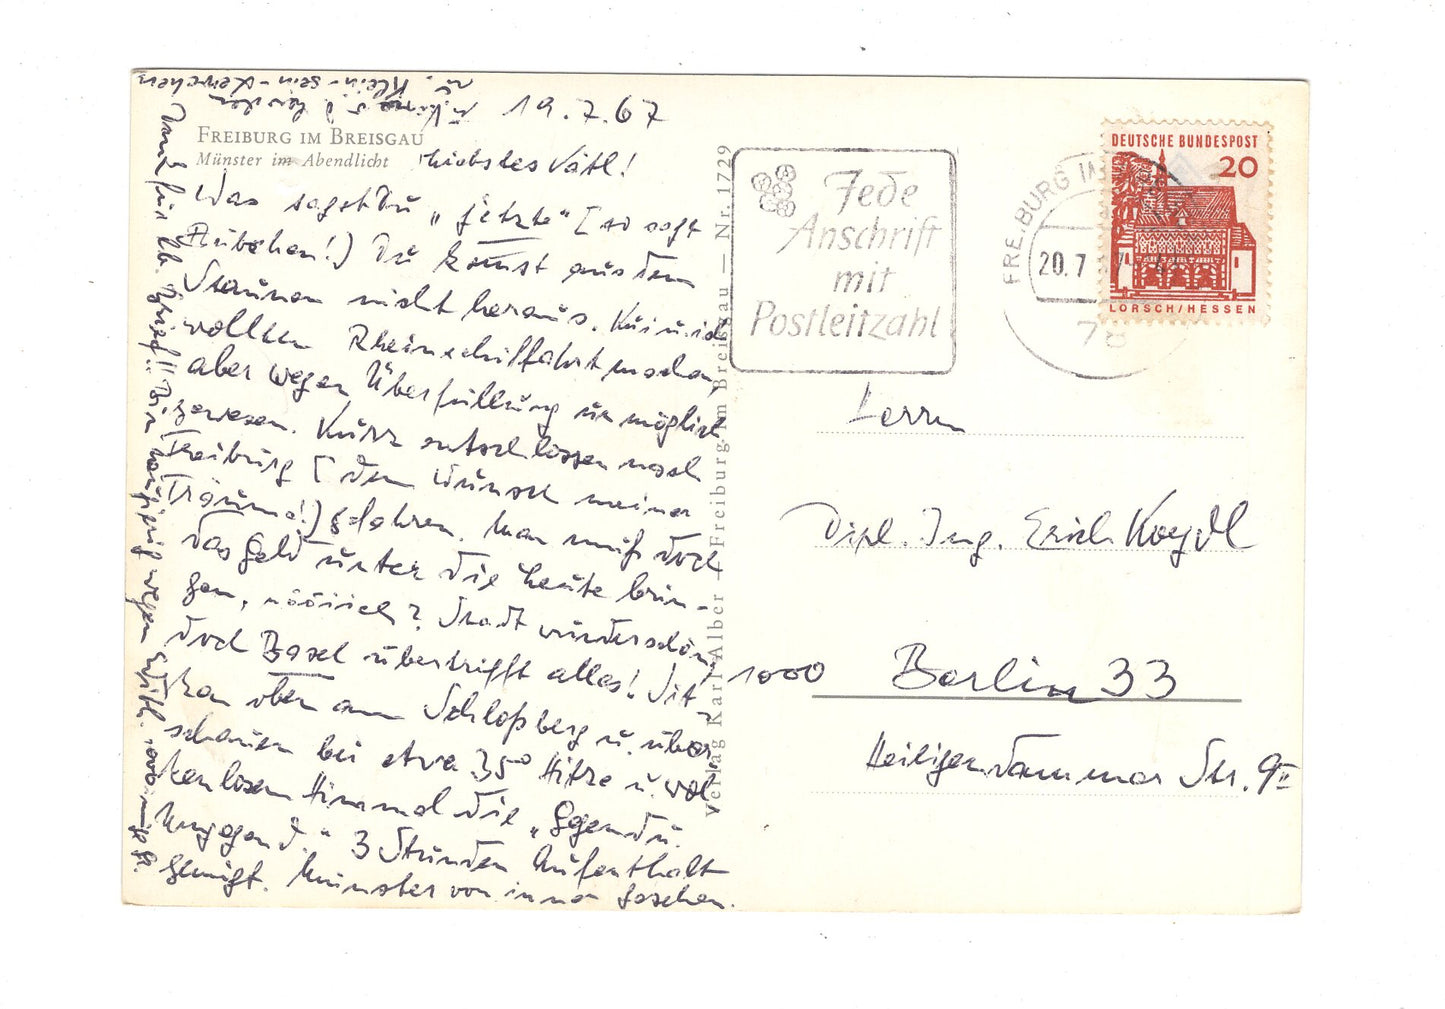 19.7.67
FREIBURG IM BREISGAU
Münster im Abendlicht
Liebstes Vatl!
Was sagst Du „jetzte" [so sagt
Bübchen!) Du kommst aus dem
Staunen nicht heraus. Kui u. ich
wollten Rheinschiffahrt machen,
aber wegen Überfüllung unmöglich
gewesen. Kurz entschlossen nach
Freiburg [dem Wunsch meiner
Träume!) gefahren. Man muß doch
das Geld unter die Leute brin-
gen, nööiiich? Stadt wunderschön,
doch Basel übertrifft alles! Sit-
zen oben am Schloßberg u. über-
schauen bei etwa 35° Hitze u. wol-
kenlosem Himmel die „Gegend u.
Umgegend." 3 Stunden Aufenthalt
genügt. Münster von innen gesehen.
Dank für lb. Brief!! Bin
u. Klein-sein-Lerrchen
Verlag Karl Alber — Freiburg im Breisgau — Nr. 1729
Jede
Anschrift
mit
Postleitzahl
FREIBURG IM
20.7
78
DEUTSCHE BUNDESPOST
20
LORSCH/HESSEN
Herrn
Dipl. Ing. Erich Koeydl
1000 Berlin 33
Heiligendammer Str. 9II